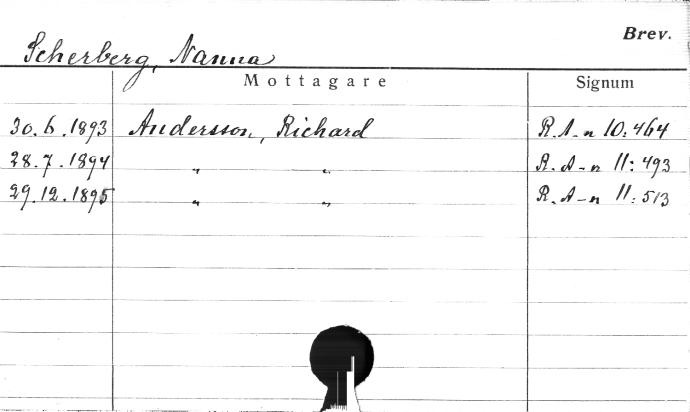 Brev.
Scherberg, Nanna
Mottagare Signum
30.6.1893 Andersson, Richard R.A-n 10:464
28.7.1894 " " R.A-n 11:493
29.12.1895 " " R.A-n 11:513